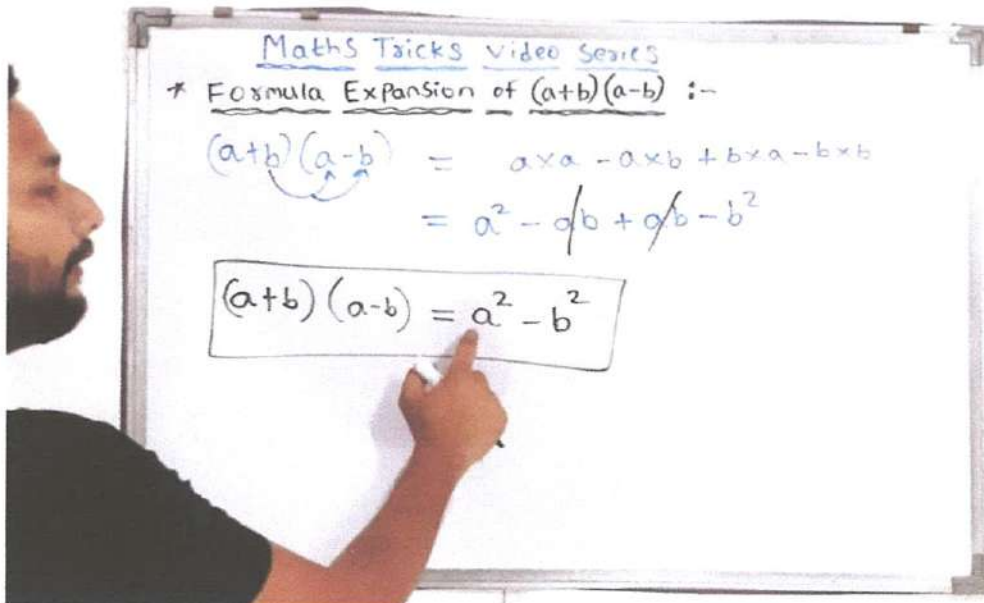 Maths Tricks Video Series
* Formula Expansion of (a+b)(a-b) :-
(a+b)(a-b) = a×a - a×b + b×a - b×b
= a² - ab + ab - b²
(a+b)(a-b) = a² - b²